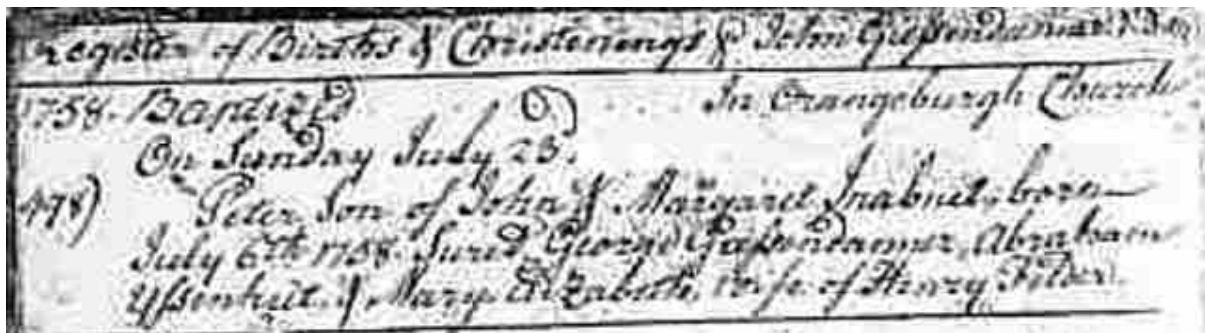 Register of Births & Christenings p. John Giessendanner
1758. Baptized. In Orangeburgh Church
On Sunday July 23.
498) Peter, Son of John & Margaret Inabnet; born
July 6th 1758. Suret. George Giessendanner, Abraham
Yssenhut. & Mary Elizabeth, wife of Henry Felder.